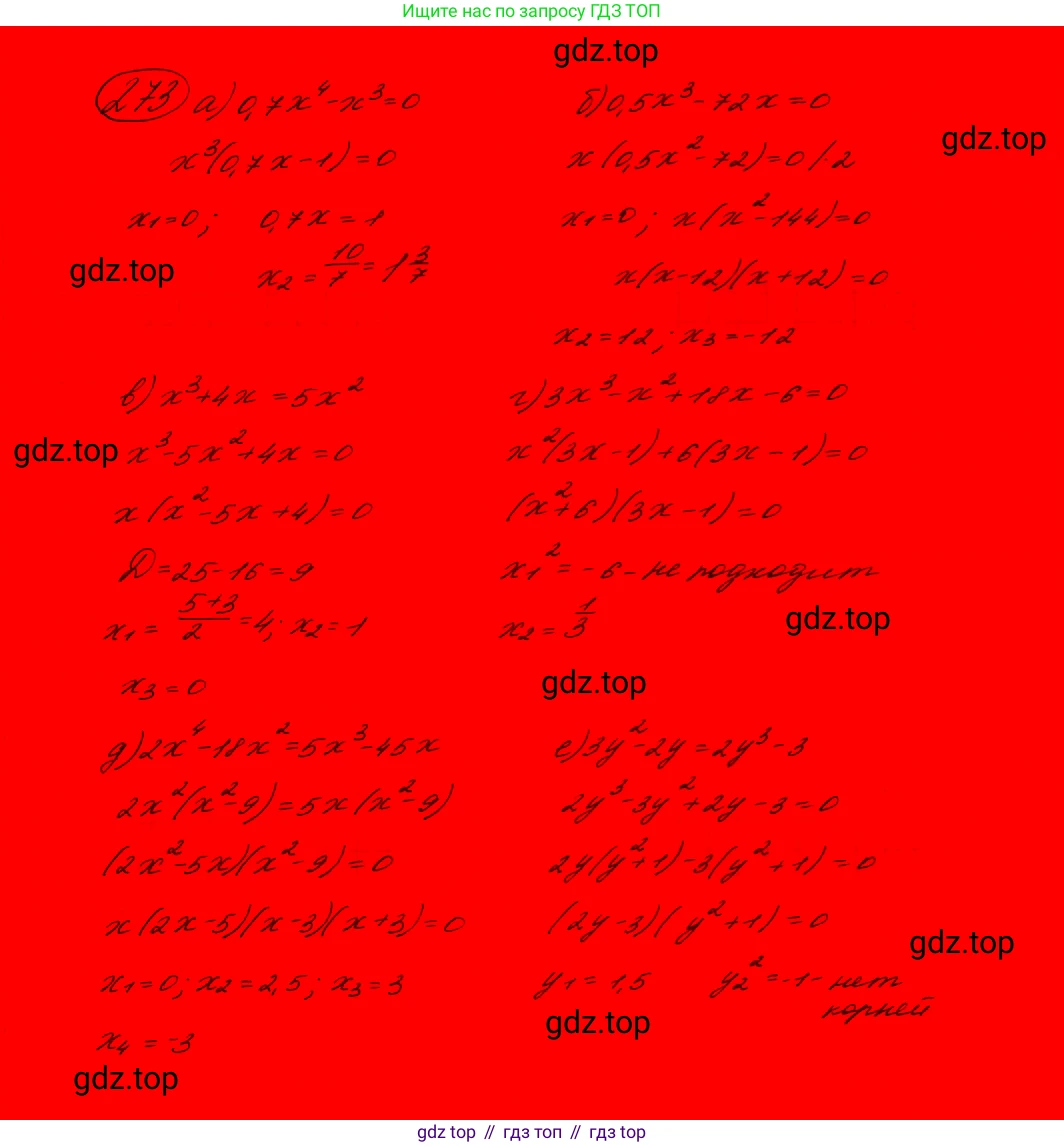 Ищите нас по запросу ГДЗ ТОП
gdz.top
273 а) 0,7x⁴-x³=0
x³(0,7x-1)=0
x₁=0; 0,7x=1
gdz.top
x₂=10/7=1 3/7
б) 0,5x³-72x=0
gdz.top
x(0,5x²-72)=0 /·2
x₁=0; x(x²-144)=0
x(x-12)(x+12)=0
x₂=12; x₃=-12
в) x³+4x=5x²
gdz.top
x³-5x²+4x=0
x(x²-5x+4)=0
D=25-16=9
x₁=(5+3)/2=4; x₂=1
x₃=0
г) 3x³-x²+18x-6=0
x²(3x-1)+6(3x-1)=0
(x²+6)(3x-1)=0
x₁²=-6-не подходит
gdz.top
x₂=1/3
gdz.top
д) 2x⁴-18x²=5x³-45x
2x²(x²-9)=5x(x²-9)
(2x²-5x)(x²-9)=0
x(2x-5)(x-3)(x+3)=0
x₁=0; x₂=2,5; x₃=3
x₄=-3
gdz.top
е) 3y²-2y=2y³-3
2y³-3y²+2y-3=0
2y(y²+1)-3(y²+1)=0
(2y-3)(y²+1)=0
gdz.top
y₁=1,5 y₂²=-1-нет
корней
gdz.top
gdz top // гдз топ // gdz top